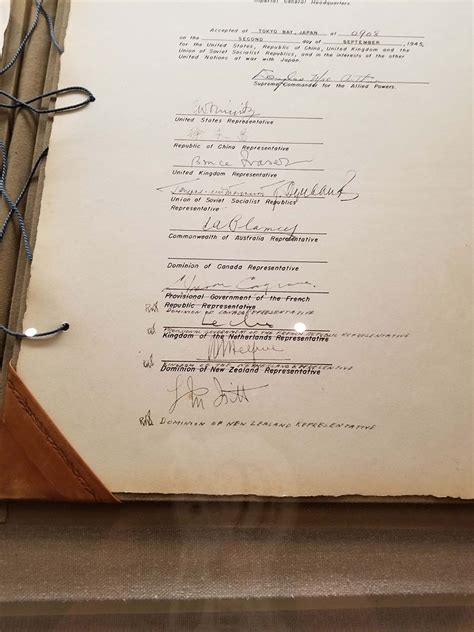 Imperial General Headquarters
Accepted at TOKYO BAY, JAPAN at 0908
on the SECOND day of SEPTEMBER 1945,
for the United States, Republic of China, United Kingdom and the
Union of Soviet Socialist Republics, and in the interests of the other
United Nations at war with Japan.
Douglas MacArthur
Supreme Commander for the Allied Powers.
CWNimitz
United States Representative
徐永昌
Republic of China Representative
Bruce Fraser
United Kingdom Representative
Union of Soviet Socialist Republics
Representative
TaBlamey
Commonwealth of Australia Representative
Dominion of Canada Representative
Moore Cosgrave
Provisional Government of the French
Republic Representative
DOMINION OF CANADA REPRESENTATIVE
Le Clerc
PROVISIONAL GOVERNMENT OF THE FRENCH REPUBLIC REPRESENTATIVE
Kingdom of the Netherlands Representative
Helfrich
KINGDOM OF THE NETHERLANDS REPRESENTATIVE
Dominion of New Zealand Representative
L M Isitt
DOMINION OF NEW ZEALAND REPRESENTATIVE